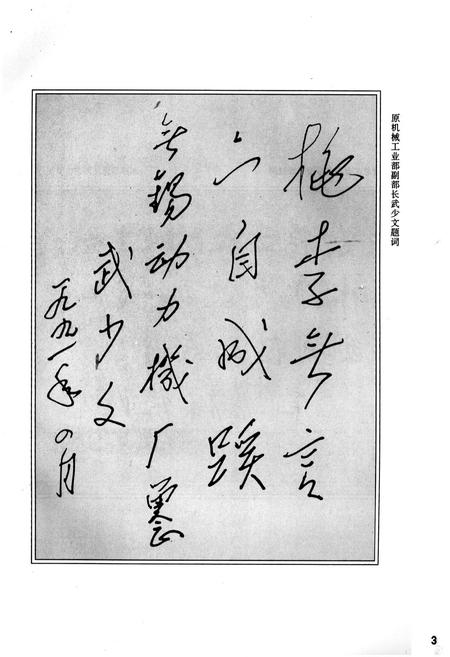 原机械工业部副部长武少文题词
桃李無言
下自成蹊
無锡动力機厂
武少文
一九九一年四月
3